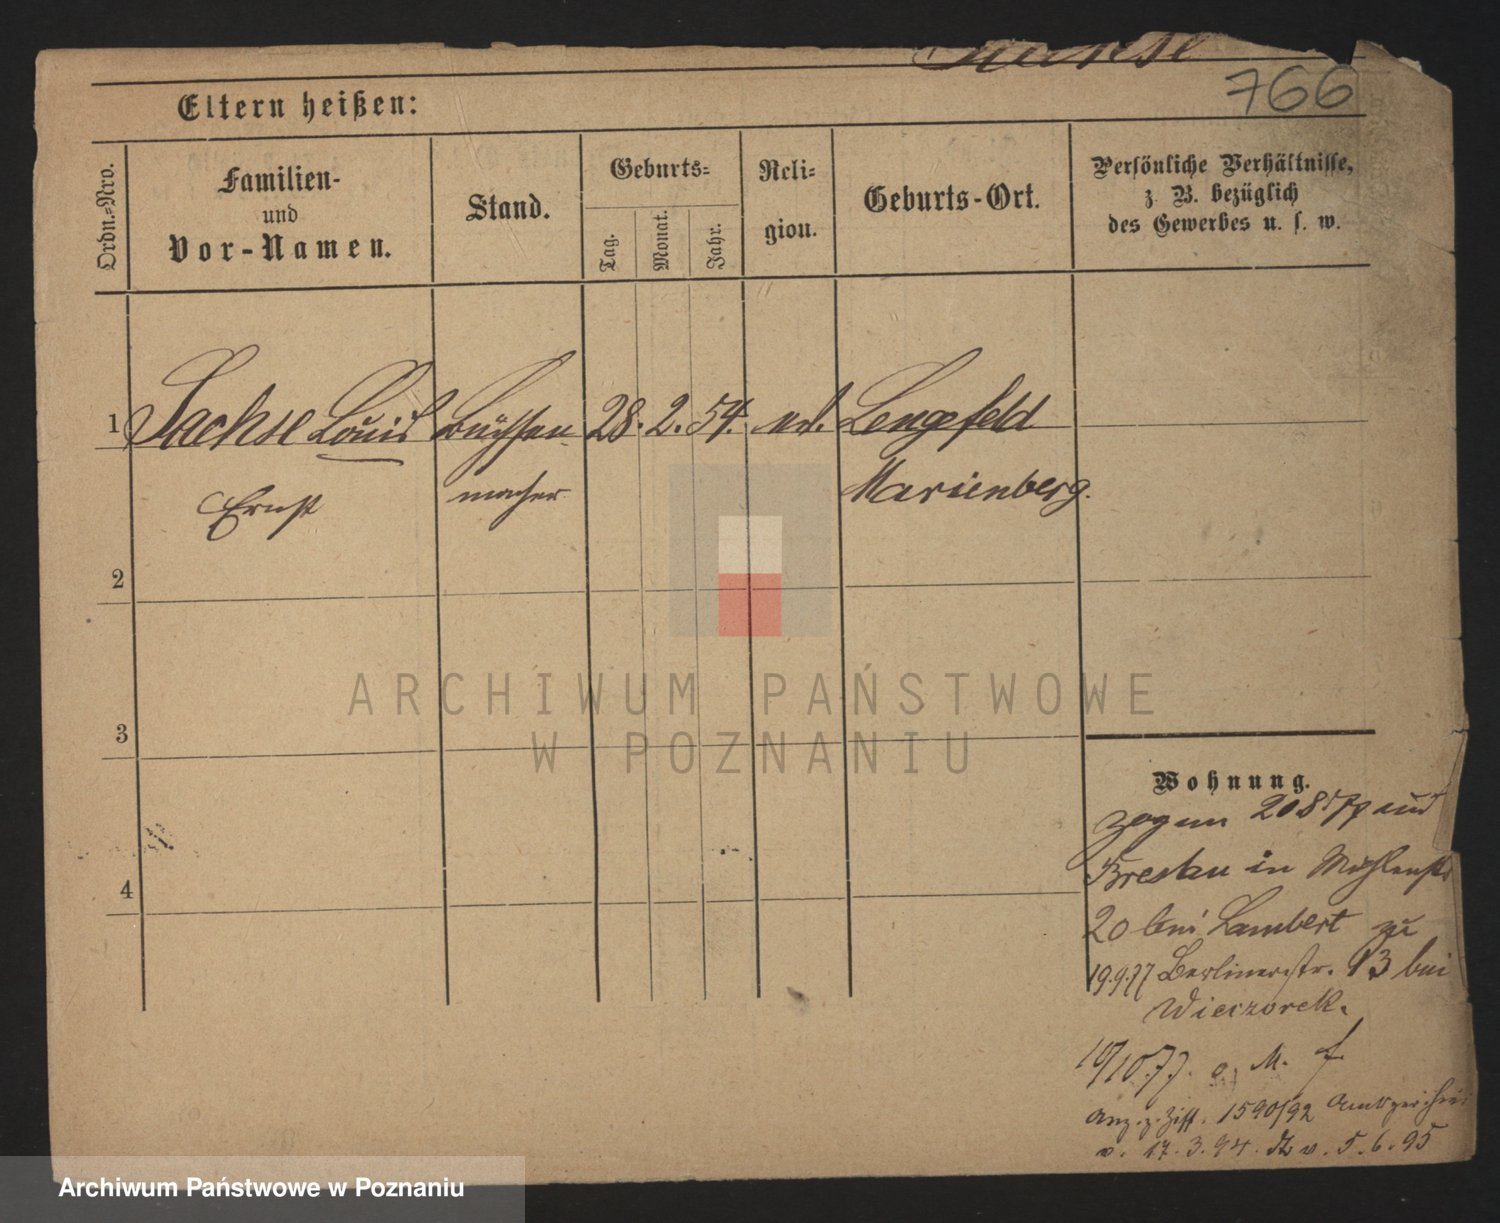 Sachse
766
Eltern heißen:
Ordn.-Nro.
Familien-
und
Vor-Namen.
Stand.
Geburts-
Tag.
Monat.
Jahr.
Reli-
gion.
Geburts-Ort.
Persönliche Verhältnisse,
z. B. bezüglich
des Gewerbes u. s. w.
1 Sachse Louis Büchsen 28. 2. 54. Lengefeld
Ernst macher Marienberg.
2
3
4
ARCHIWUM PAŃSTWOWE
W POZNANIU
Wohnung.
zog am 20 8 77 aus
Breslau in Mühlenstr
20 bei Lambert zu
19.9.77 Berlinerstr. 13 bei
Wieczorek.
19/10.77. a. M. f.
Anz. z. Ziff. 1590/92
v. 17. 3. 94. v. 5. 6. 95
Archiwum Państwowe w Poznaniu